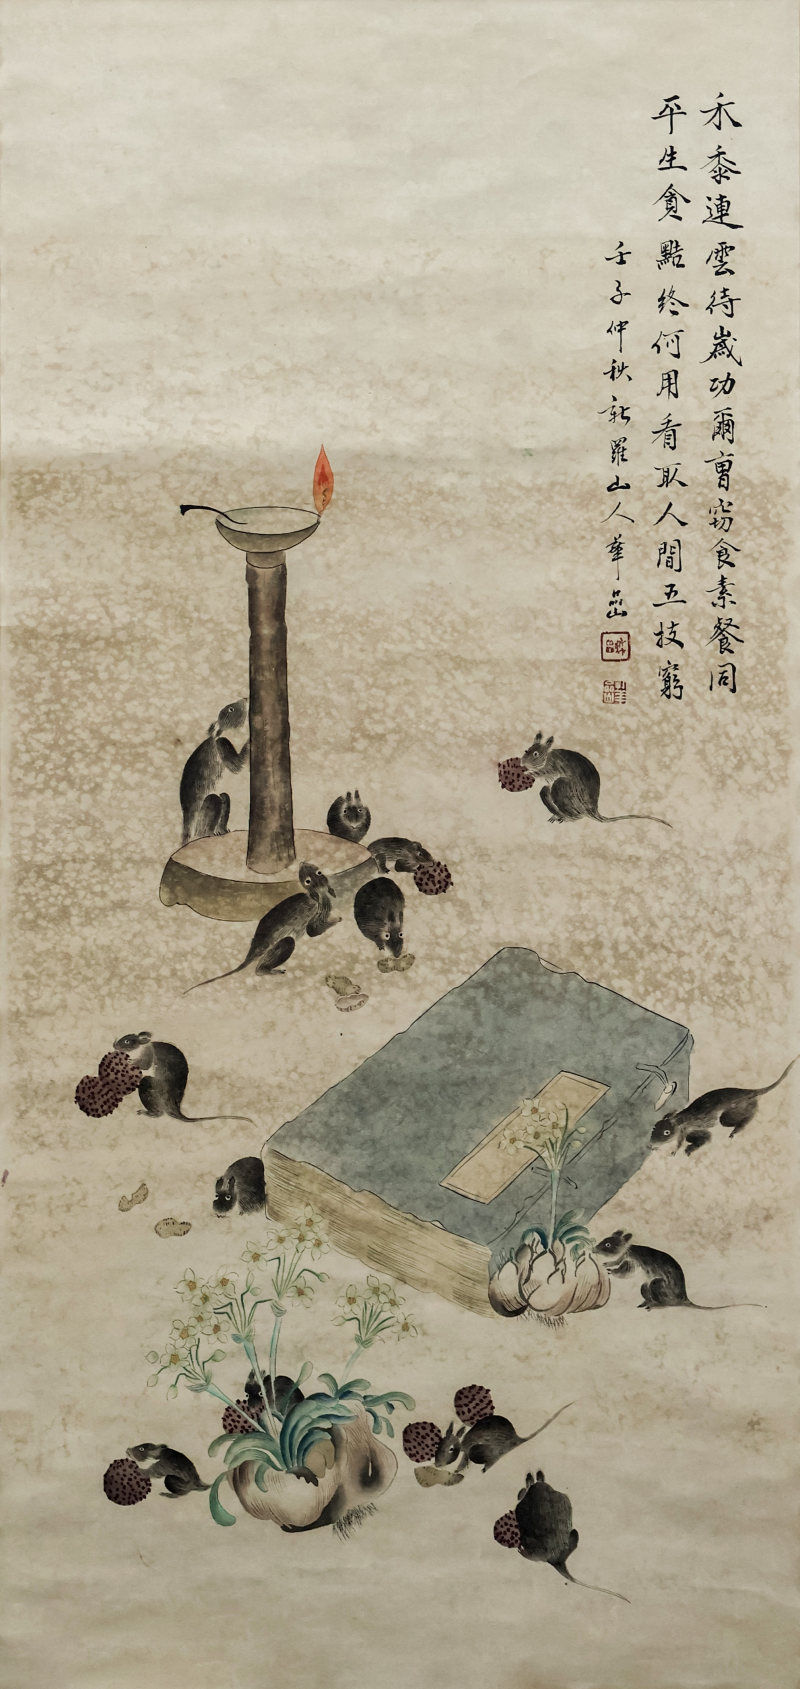 禾黍連雲待歲功爾曹竊食素餐同
平生貪黠終何用看取人間五技窮
壬子仲秋新羅山人華喦